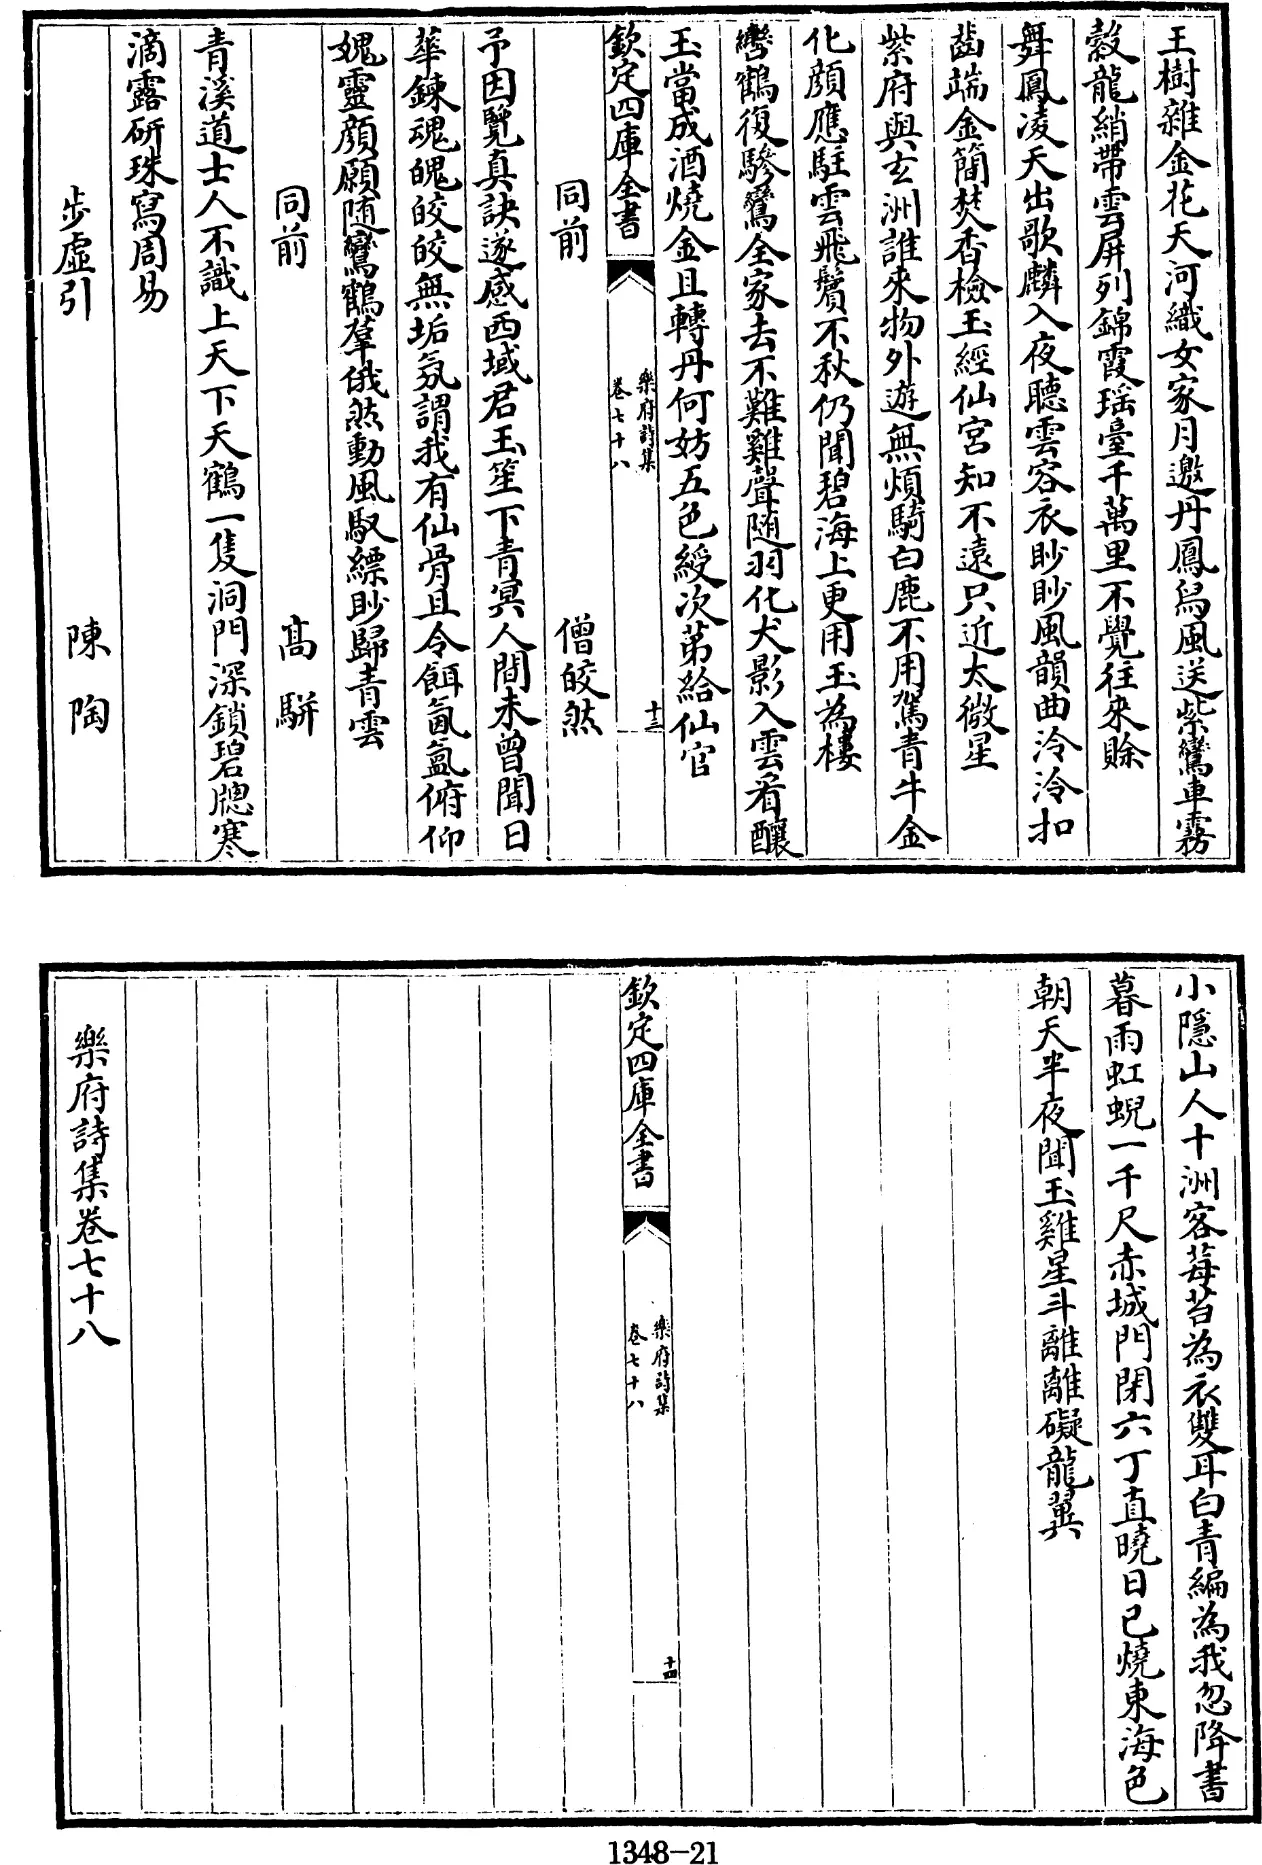 玉樹雜金花天河織女家月邀丹鳳舄風送紫鸞車霧
縠龍綃帶雲屏列錦霞瑤臺千萬里不覺往來賒
舞鳳凌天出歌麟入夜聽雲容衣眇眇風韻曲泠泠扣
齒端金簡焚香檢玉經仙宮知不遠只近太微星
紫府與玄洲誰來物外遊無煩騎白鹿不用駕青牛金
化顏應駐雲飛鬢不秋仍聞碧海上更用玉為樓
轡鶴復驂鸞全家去不難雞聲隨羽化犬影入雲看釀
玉當成酒燒金且轉丹何妨五色綬次第給仙官
欽定四庫全書
樂府詩集
卷七十八
十三
同前
僧皎然
予因覽真訣遂感西域君玉笙下青冥人間未曾聞日
華鍊魂魄皎皎無垢氛謂我有仙骨且令餌氤氳俯仰
媿靈顏願隨鸞鶴羣俄然動風馭縹眇歸青雲
同前
高駢
青溪道士人不識上天下天鶴一隻洞門深鎖碧牕寒
滴露研珠寫周易
步虛引
陳陶
小隱山人十洲客莓苔為衣雙耳白青編為我忽降書
暮雨虹蜺一千尺赤城門閉六丁直曉日已燒東海色
朝天半夜聞玉雞星斗離離礙龍翼
欽定四庫全書
樂府詩集
卷七十八
十四
樂府詩集卷七十八
1348-21